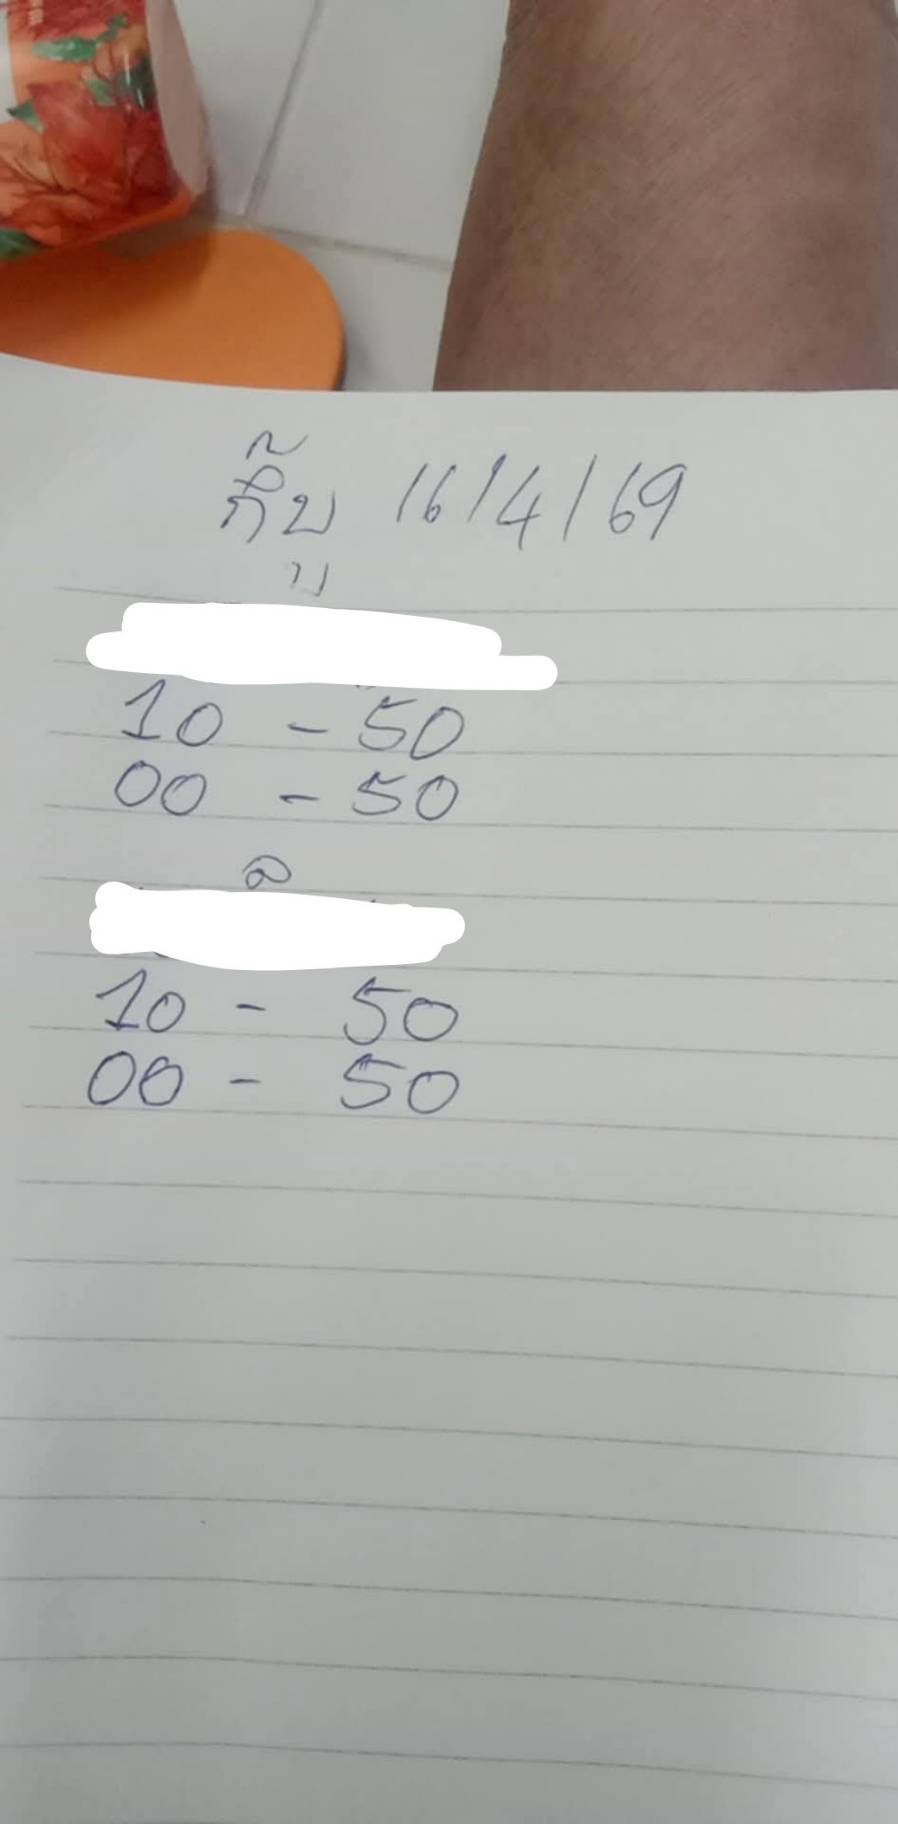 กิ๊บ 16/4/69
บ
10 - 50
00 - 50
ล
10 - 50
00 - 50